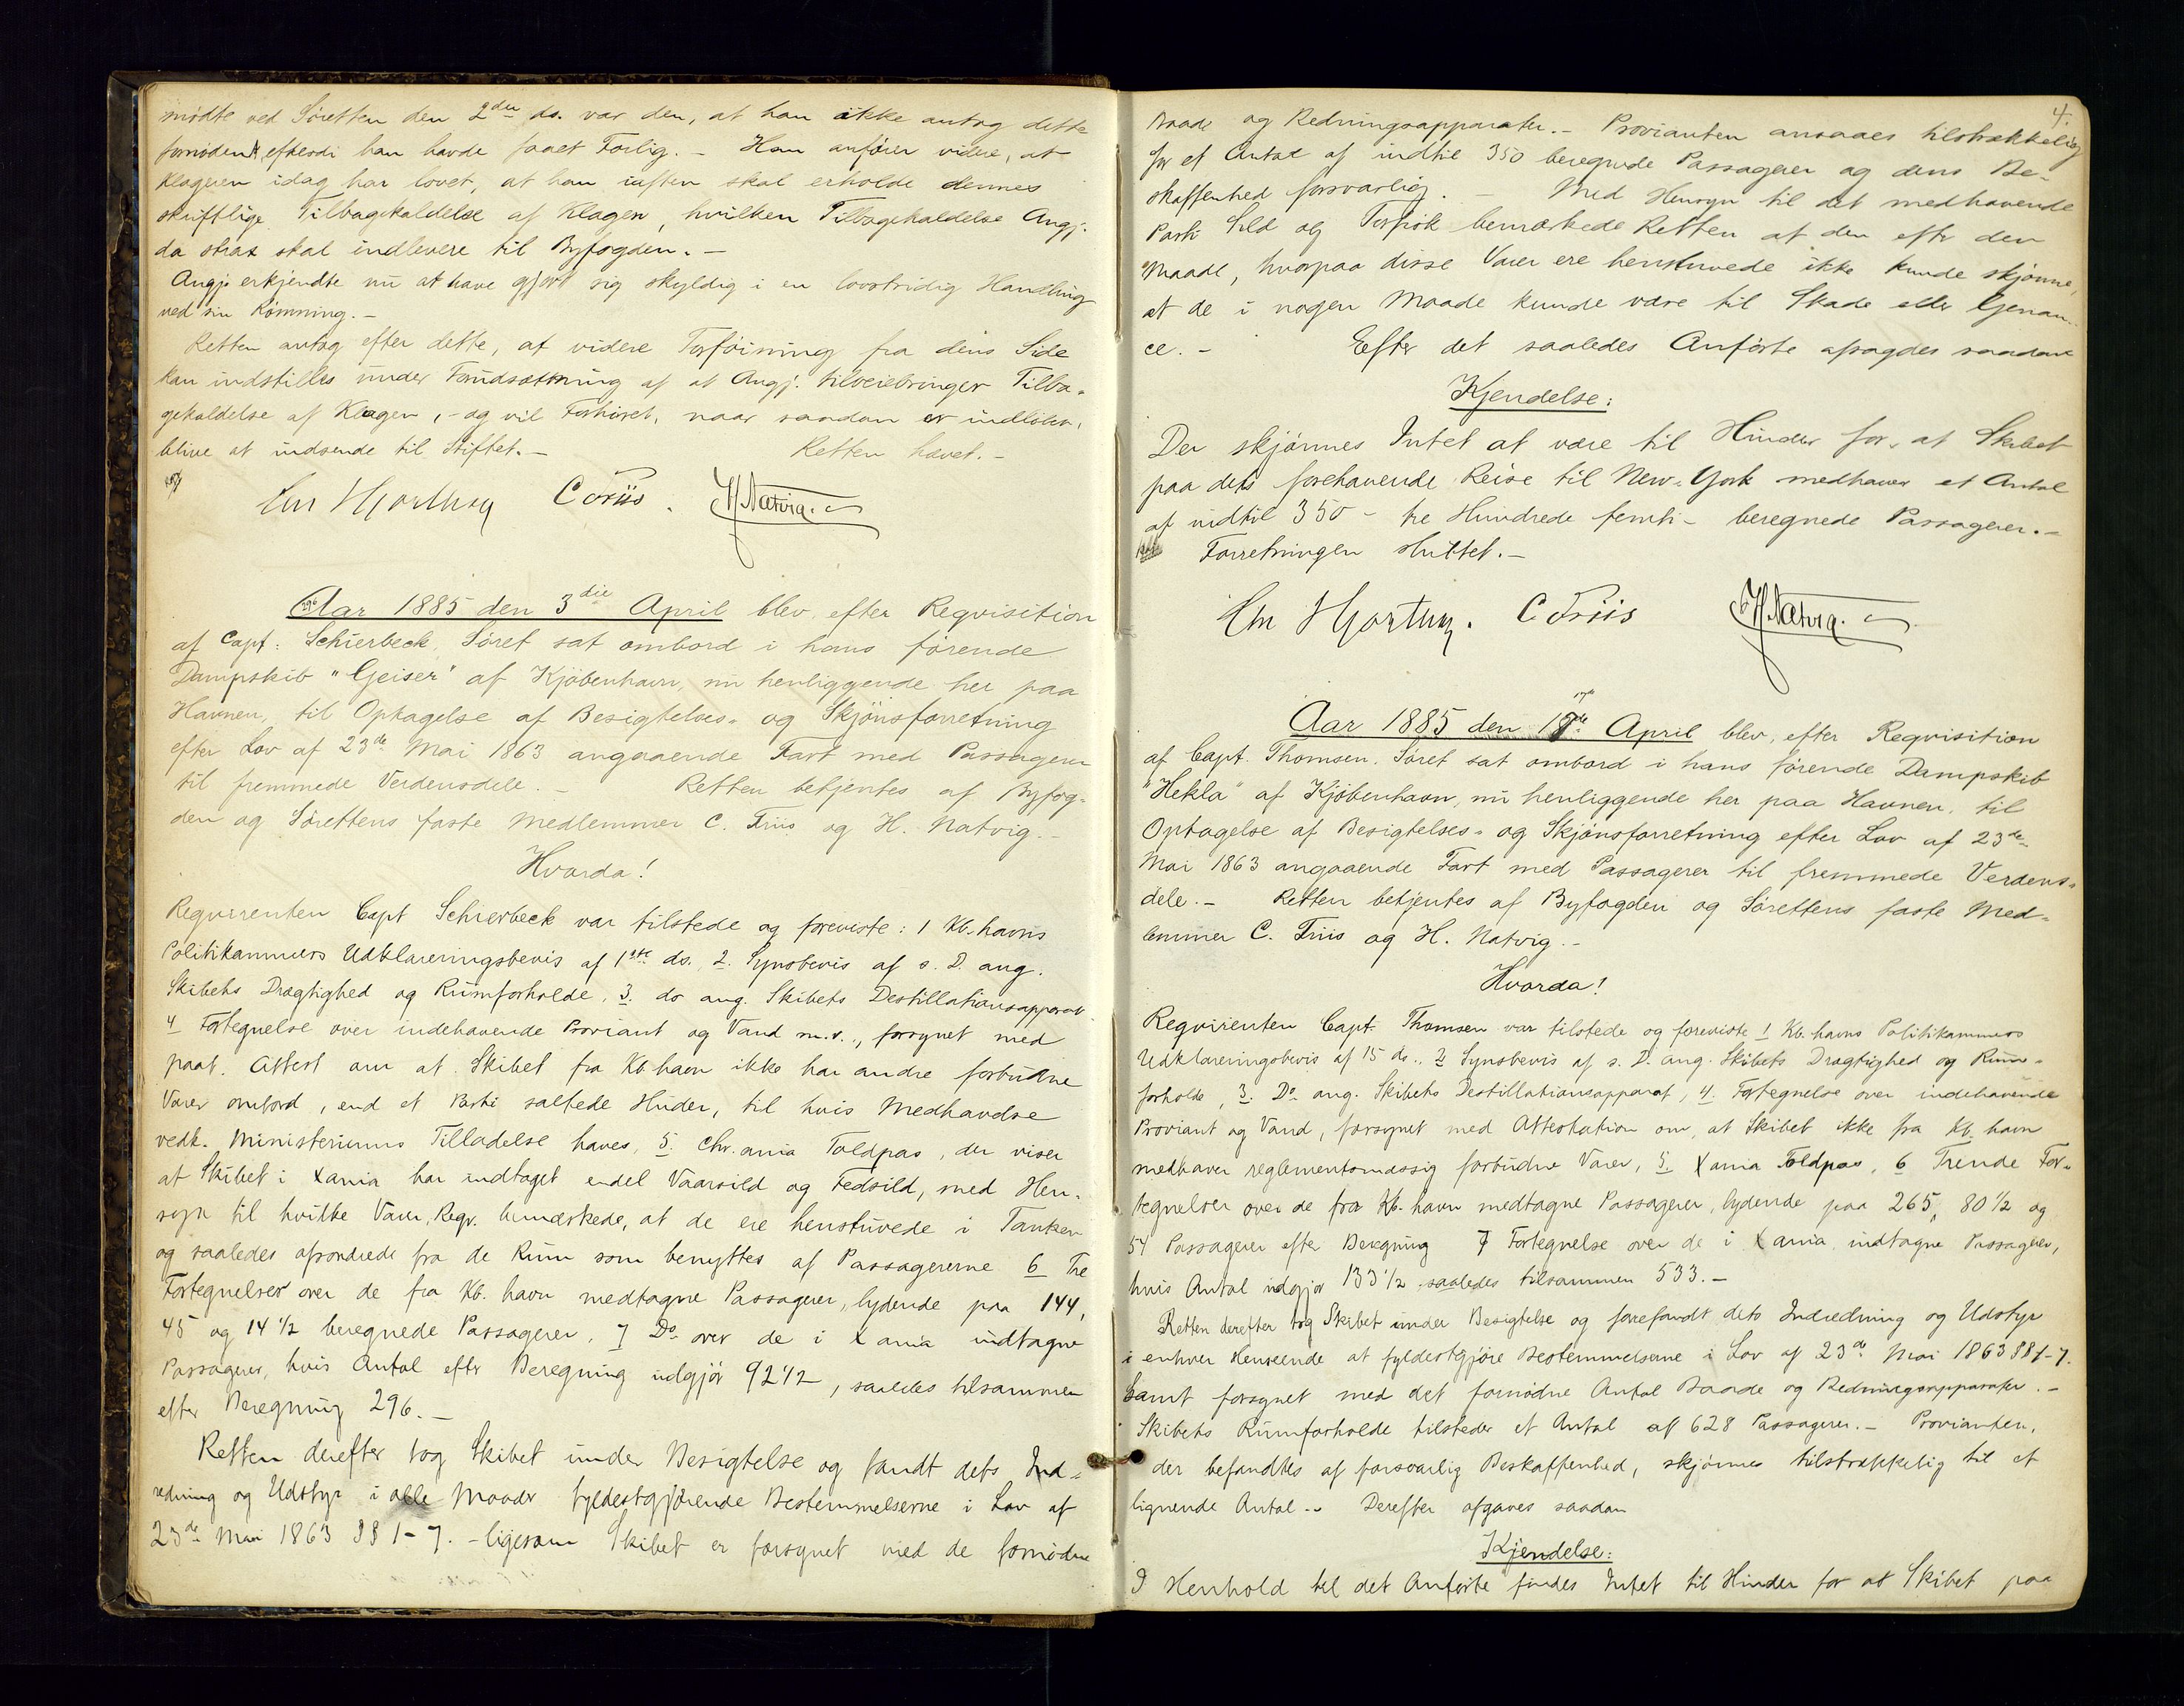 mødte ved Søretten den 2den ds. var den, at han ikke antog dette
fornødent, efterdi han havde faaet Forlig. – Han anfører videre, at
Klageren idag har lovet, at han iaften skal erholde dennes
skriftlige Tilbagekaldelse af Klagen, hvilken Tilbagekaldelse Angj.
da strax skal indlevere til Byfogden. –
Angj. erkjendte nu at have gjort sig skyldig i en lovstridig Handling
ved sin Rømning. –
Retten antog efter dette, at videre Forføining fra dens Side
kan indstilles under Forudsætning af at Angj. tilveiebringer Tilba-
gekaldelse af Klagen, – og vil Forhøret, naar saadan er indløben,
blive at indsende til Stiftet. – Retten hævet. –
Chr Hjorthøy C Friis. H. Natvig.
296
Aar 1885 den 3die April blev efter Reqvisition
af Capt: Schierbeck, Søret sat ombord i hans førende
Dampskib "Geiser" af Kjøbenhavn, nu henliggende her paa
Havnen, til Optagelse af Besigtelses- og Skjønsforretning
efter Lov af 23de Mai 1863 angaaende Fart med Passagerer
til fremmede Verdensdele. – Retten betjentes af Byfog-
den og Sørettens faste Medlemmer C. Friis og H. Natvig. –
Hvorda!
Reqvirenten Capt Schierbeck var tilstede og foreviste: 1 Kb.havns
Politikammers Udklareringsbevis af 1ste ds. 2. Synsbevis af s. D. ang.
Skibets Drægtighed og Rumforholde, 3. do ang. Skibets Destillationsapparat
4 Fortegnelse over indehavende Proviant og Vand m.v., forsynet med
paat. Attest om at Skibet fra Kb.havn ikke har andre forbudne
Varer ombord, end et Parti saltede Huder, til hvis Medhavdse
vedk. Ministeriums Tilladelse haves, 5. Chr.ania Toldpas, der viser
at Skibet i Xania har indtaget endel Vaarsild og Fedsild, med Hen-
syn til hvilke Varer, Reqv. bemærkede, at de ere henstuvede i Tanken
og saaledes afsondrede fra de Rum som benyttes af Passagererne 6 Tre
Fortegnelser over de fra Kb. havn medtagne Passagerer, lydende paa 144,
45 og 14 1/2 beregnede Passagerer, 7 Do over de i Xania indtagne
Passagerer, hvis Antal efter Beregning udgjør 92 1/2, saaledes tilsammen
efter Beregning 296. –
Retten derefter tog Skibet under Besigtelse og fandt dets Ind-
redning og Udstyr i alle Maader fyldestgjørende Bestemmelserne i Lov af
23de Mai 1863 §§ 1-7. – ligesom Skibet er forsynet med de fornødne
4.
Baade og Redningsapparater. – Provianten ansaaes tilstrækkelig
for et Antal af indtil 350 beregnede Passagerer og dens Be-
skaffenhed forsvarlig. – Med Hensyn til det medhavende
Parti Sild og Tørfisk bemærkede Retten at den eftr den
Maade, hvorpaa disse Varer ere henstuvede ikke kunde skjønne,
at de i nogen Maade kunde være til Skade eller Genan-
ce. – Eefter det saaledes Anførte afsagdes saadan
Kjendelse:
Der skjønnes Intet at være til Hinder for, at Skibet
paa dets forehavende Reise til New-York medhaver et Antal
af indtil 350 – tre Hundrede femti – beregnede Passagerer. –
Forretningen sluttet. –
Chr Hjorthøy. C Friis H. Natvig.
17de
Aar 1885 den 18de April blev, efter Reqvisition
af Capt. Thomsen, Søret sat ombord i hans førende Dampskib
"Hekla" af Kjøbenhavn, nu henliggende her paa Havnen, til
Optagelse af Besigtelses- og Skjønsforretning efter Lov af 23de
Mai 1863 angaaende Fart med Passagerer til fremmede Verdens-
dele. – Retten betjentes af Byfogden og Sørettens faste Med-
lemmer C. Friis og H. Natvig. –
Hvorda!
Reqvirenten Capt. Thomsen var tilstede og foreviste 1 Kb.havns Politikammers
Udklareringsbevis af 15 ds., 2 Synsbevis af s. D. ang. Skibets Drægtighed og Rum-
forholde, 3. Do ang. Skibets Destillationsapparat, 4. Fortegnelse over indehavende
Proviant og Vand, forsynet med Attestation om, at Skibet ikke fra Kb. havn
medhaver reglementsmæssig forbudne Varer, 5. Xania Toldpas, 6 Trende For-
tegnelser over de fra Kb. havn medtagne Passagerer, lydende paa 265, 80 1/2 og
54 Passagerer efter Beregning 7 Fortegnelse over de i Xania indtagne Passagerer,
hvis Antal udgjør 133 1/2 saaledes tilsammen 533. –
Retten derefter tog Skibet under Besigtelse og forefandt dets Indredning og Udstyr
i enhver Henseende at fyldestgjøre Bestemmelserne i Lov af 23de Mai 1863 §§ 1-7.
samt forsynet med det fornødne Antal Baade og Redningsapparater. –
Skibets Rumforholde tilsteder et Antal af 628 Passagerer. – Provianten,
der befandtes af forsvarlig Beskaffenhed, skjønnes tilstrækkelig til et
lignende Antal. – Derefter afgaves saadan
Kjendelse:
I Henhold til det Anførte findes Intet til Hinder for at Skibet paa